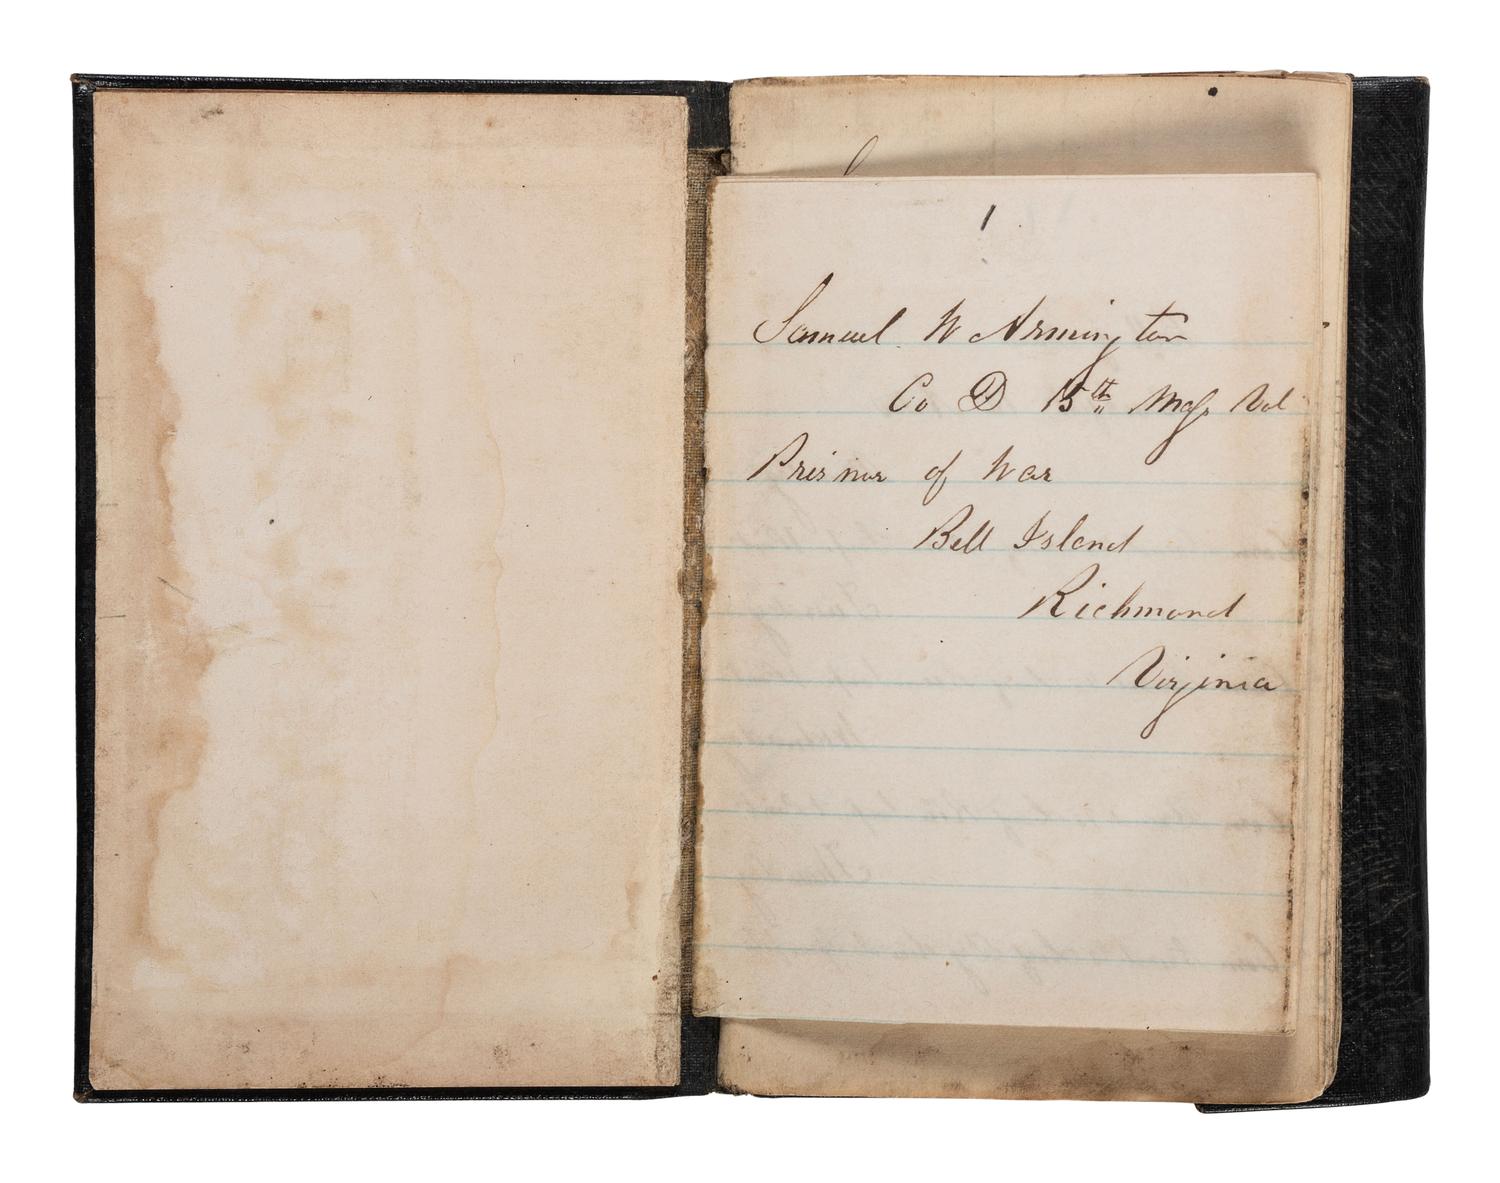 1
Samuel W Armington
Co D 15th Mass Vol
Prisnor of War
Bell Island
Richmond
Virginia